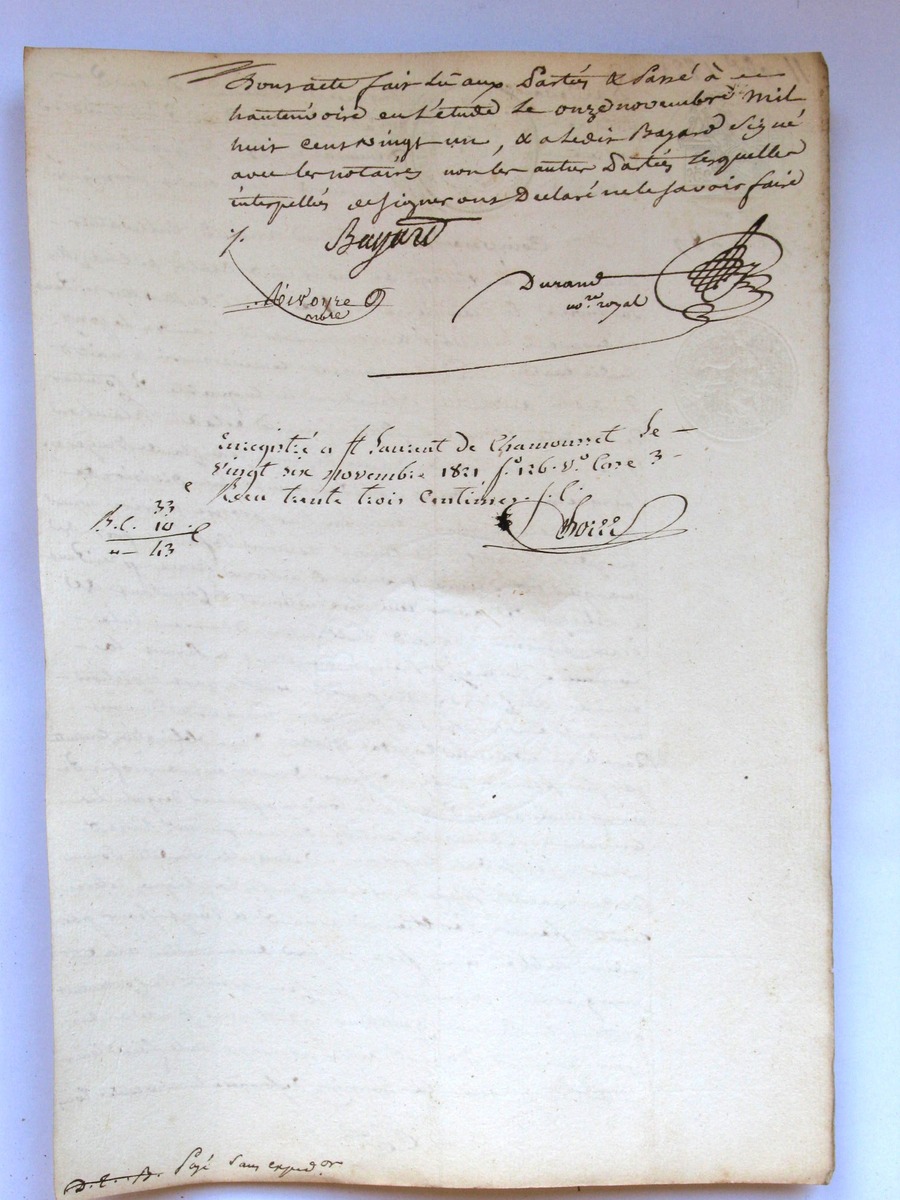 Dont acte fait Lû aux Parties & Passé à
hautevoire en L'étude Le onze novembre Mil
huit cent vingt un, & a Ledit Bayard signé
avec les notaires non les autres Parties Lesquelles
interpellés de signer ont Déclaré ne le savoir faire
Bayard
Durand
nore royal
nore
Enregistré a St Laurent de Chamousset Le
vingt six Novembre 1821 fo 126 Vo Case 3
Reçu trente trois Centimes
33
10
43
Payé sans expedon